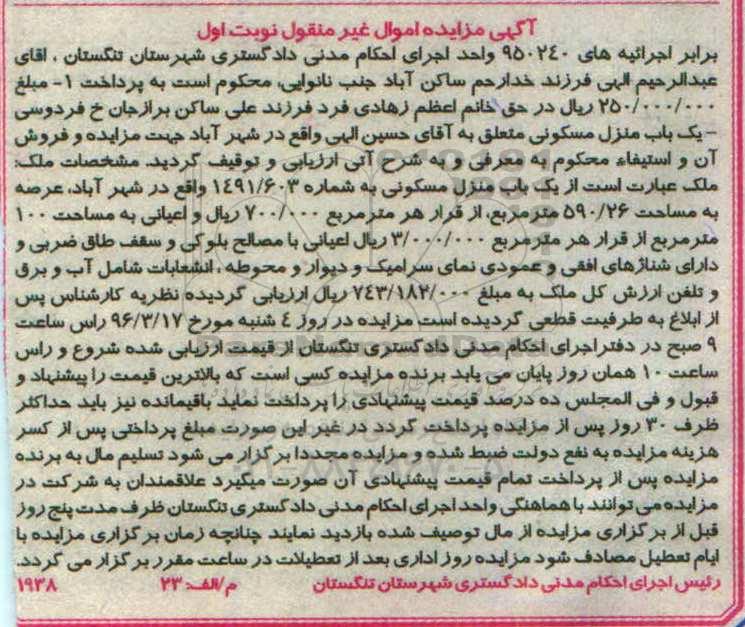 آگهی مزایده اموال غیر منقول نوبت اول
برابر اجرائیه های ۹۵۰۲٤۰ واحد اجرای احکام مدنی دادگستری شهرستان تنگستان ، اقای
عبدالرحیم الهی فرزند خدارحم ساکن آباد جنب نانوایی، محکوم است به پرداخت ۱- مبلغ
۲۵۰/۰۰۰/۰۰۰ ریال در حق خانم اعظم زهادی فرد فرزند علی ساکن برازجان خ فردوسی
- یک باب منزل مسکونی متعلق به آقای حسین الهی واقع در شهر آباد جهت مزایده و فروش
آن و استیفاء محکوم به معرفی و به شرح آتی ارزیابی و توقیف گردید. مشخصات ملک:
ملک عبارت است از یک باب منزل مسکونی به شماره ۱٤۹۱/۶۰۳ واقع در شهر آباد، عرصه
به مساحت ۵۹۰/۲۶ مترمربع، از قرار هر مترمربع ۷۰۰/۰۰۰ ریال و اعیانی به مساحت ۱۰۰
مترمربع از قرار هر مترمربع ۳/۰۰۰/۰۰۰ ریال اعیانی با مصالح بلوکی و سقف طاق ضربی و
دارای شناژهای افقی و عمودی نمای سرامیک و دیوار و محوطه ، انشعابات شامل آب و برق
و تلفن ارزش کل ملک به مبلغ ۷٤۳/۱۸۲/۰۰۰ ریال ارزیابی گردیده نظریه کارشناس پس
از ابلاغ به طرفیت قطعی گردیده است مزایده در روز ٤ شنبه مورخ ۹۶/۳/۱۷ راس ساعت
۹ صبح در دفتر اجرای احکام مدنی دادگستری تنگستان از قیمت ارزیابی شده شروع و راس
ساعت ۱۰ همان روز پایان می یابد برنده مزایده کسی است که بالاترین قیمت را پیشنهاد و
قبول و فی المجلس ده درصد قیمت پیشنهادی را پرداخت نماید باقیمانده نیز باید حداکثر
ظرف ۳۰ روز پس از مزایده پرداخت گردد در غیر این صورت مبلغ پرداختی پس از کسر
هزینه مزایده به نفع دولت ضبط شده و مزایده مجددا برگزار می شود تسلیم مال به برنده
مزایده پس از پرداخت تمام قیمت پیشنهادی آن صورت میگیرد علاقمندان به شرکت در
مزایده می توانند با هماهنگی واحد اجرای احکام مدنی دادگستری تنگستان ظرف مدت پنج روز
قبل از برگزاری مزایده از مال توصیف شده بازدید نمایند چنانچه زمان برگزاری مزایده با
ایام تعطیل مصادف شود مزایده روز اداری بعد از تعطیلات در ساعت مقرر برگزار می گردد.
رئیس اجرای احکام مدنی دادگستری شهرستان تنگستان م/الف: ۲۳ ۱۹۳۸